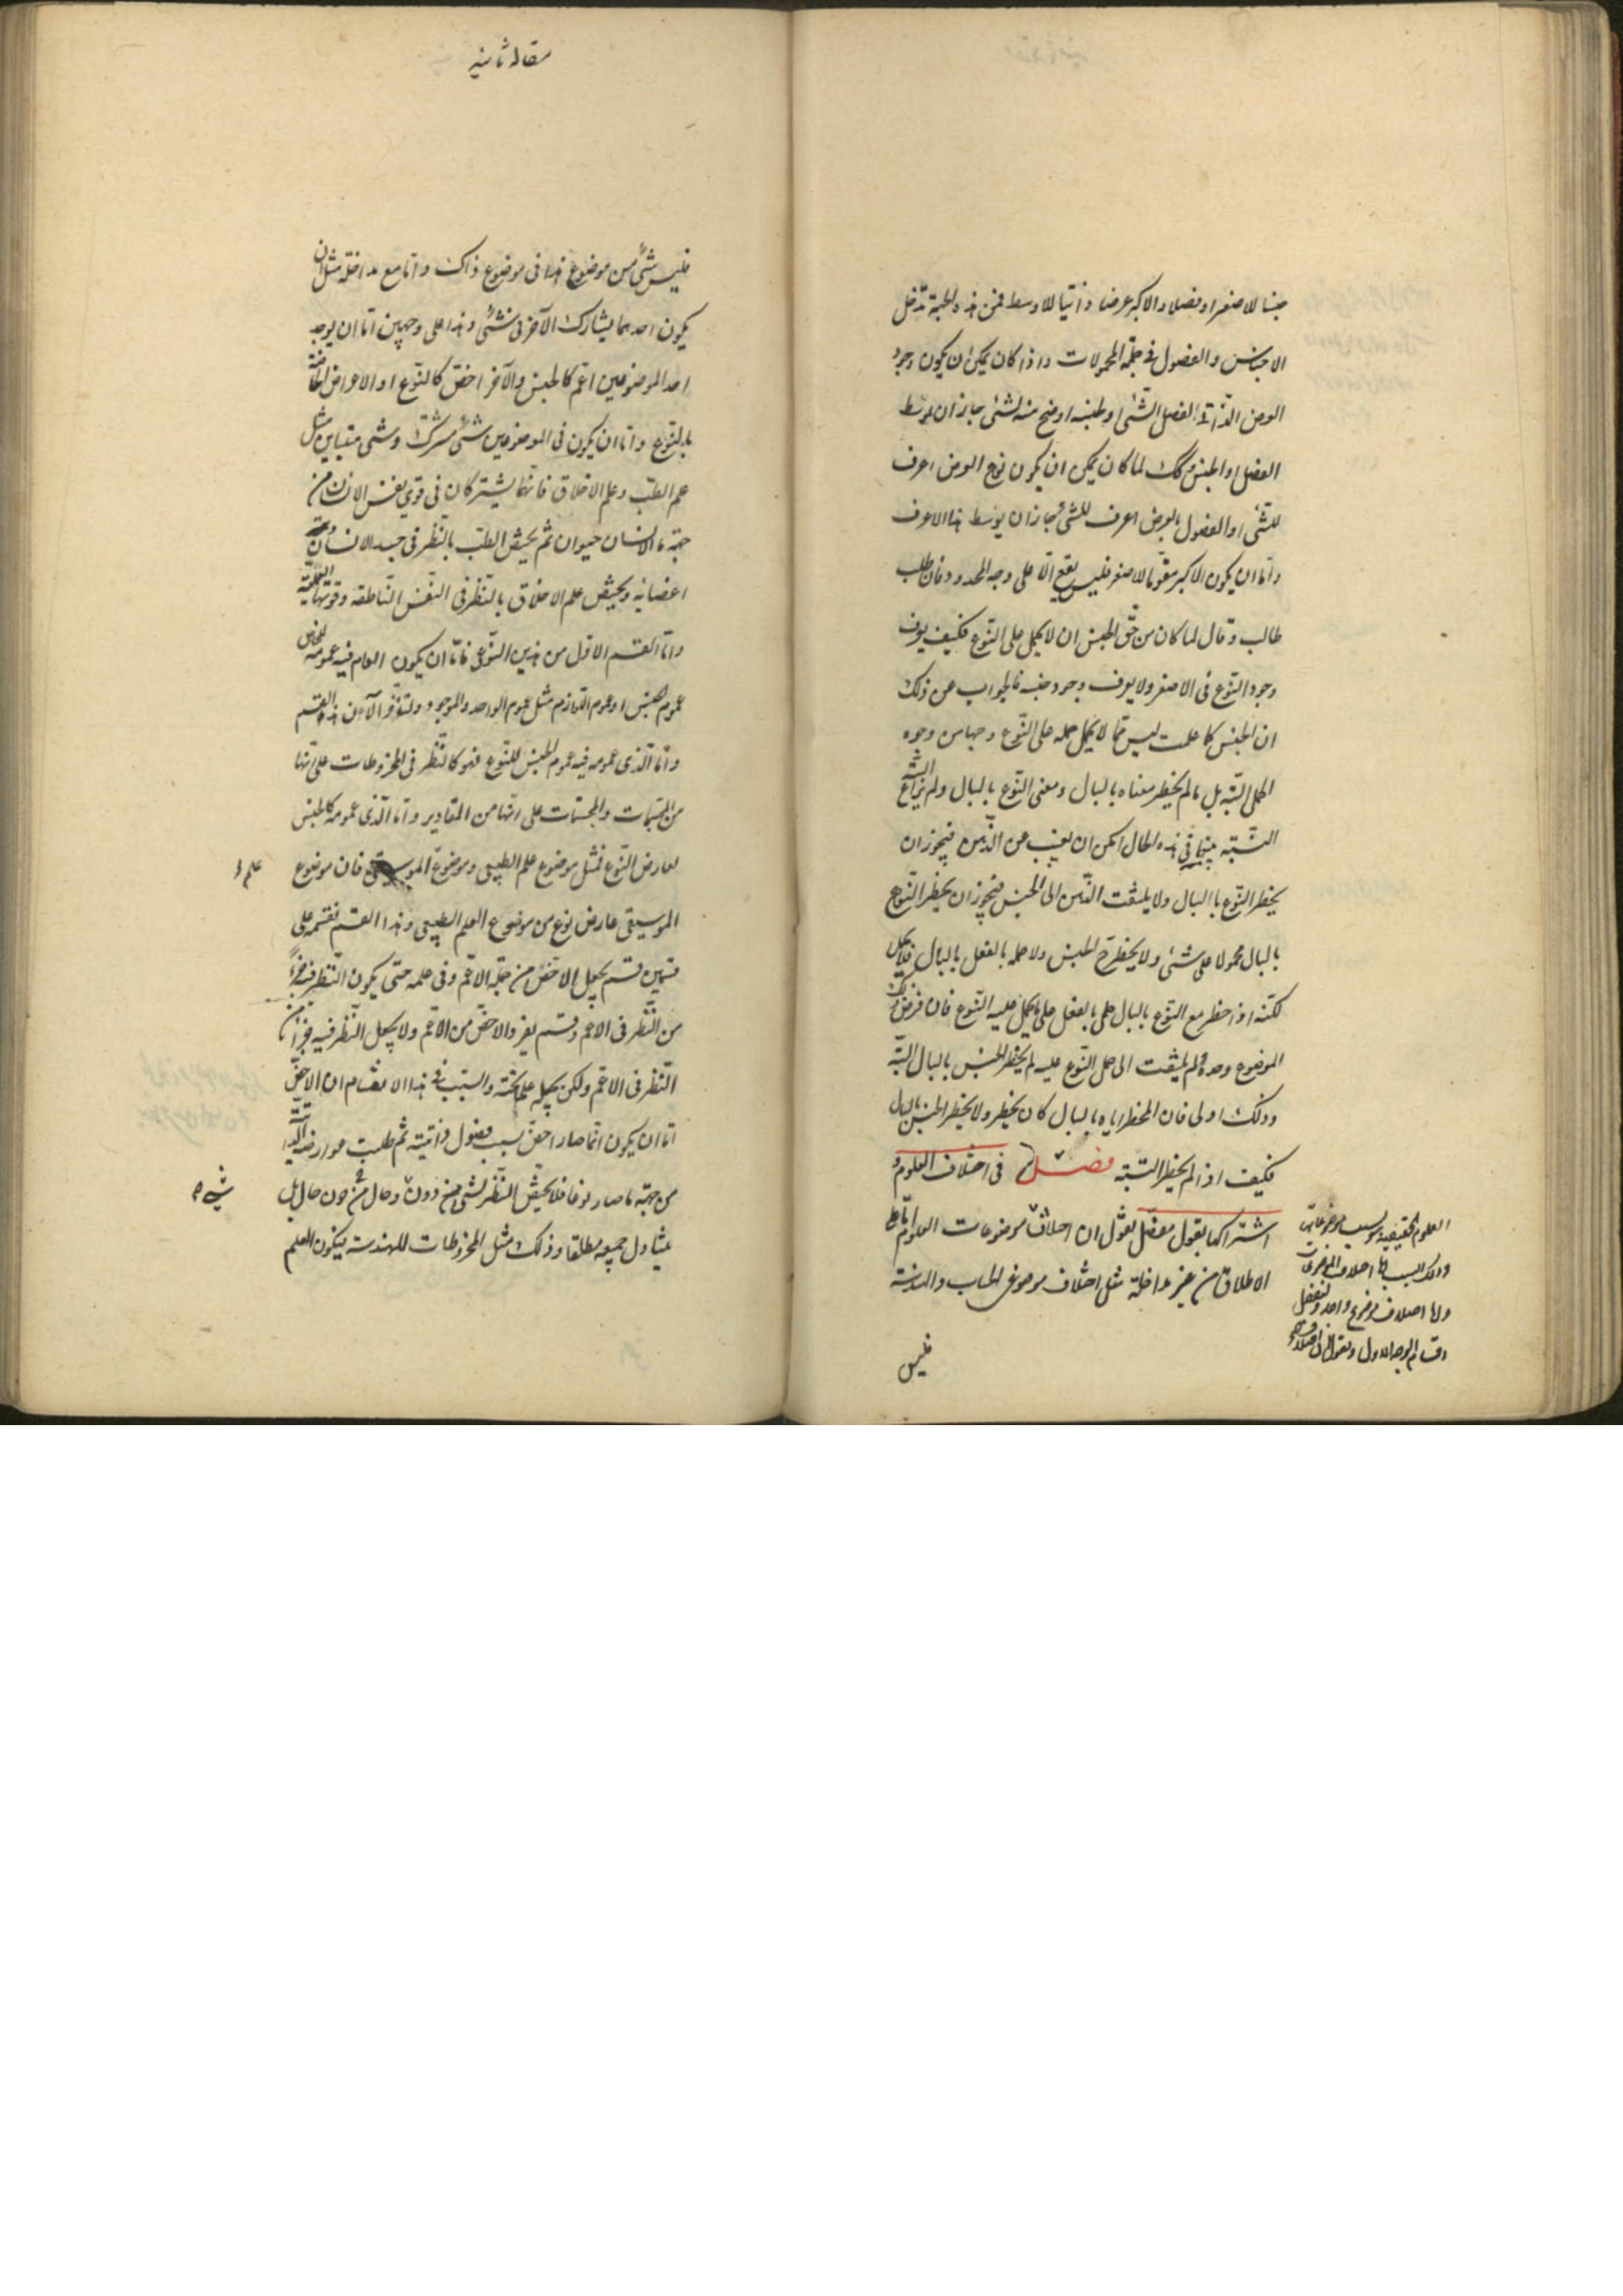 جنسا للاصغر او فصلا والاكبر عرضا ذاتيا للاوسط فمن هذه الجهة تدخل
الاجناس والفصول فى جملة المحمولات واذا كان يمكن ان يكون وجود
العرض الذاتى لفصل الشئ او لجنسه اوضح منه للشئ جاز ان يوسط
الفصل او الجنس وكك لما كان يمكن ان يكون نوع العرض اعرف
للشئ او الفصول بالعرض اعرف للشئ فجاز ان يوسط هذا الاعرف
واما ان يكون الاكبر مقوما للاصغر فليس يقع الا على وجه المحدود فان طلب
طالب وقال لما كان من حق الجنس ان لا يحمل على النوع فكيف يعرف
وجود النوع فى الاصغر ولا يعرف وجود جنسه فالجواب عن ذلك
ان الجنس كما علمت ليس مما لا يحمل حمله على النوع وجها من وجوه
الحمل البتة بل ما لم يخطر معناه بالبال ومعنى النوع بالبال ولم يراع
النسبة بينهما فى هذه الحال امكن ان يغيب عن الذهن فيجوز ان
يخطر النوع باالبال ولا يلتفت الذهن الى الجنس فيجوز ان يخطر النوع
بالبال محمولا على شئ ولا يخطر ح الجنس ولا حمله بالفعل بالبال فلا يحمل
لكنه اذا خطر مع النوع بالبال حمل بالفعل على ما يحمل عليه النوع فان فرض
الموضوع وحده ولم يلتفت الى حمل النوع عليه لم يخطر الجنس بالبال البتة
وذلك اولى فان المخطر اياه بالبال كان يخطر ولا يخطر الجنس بالبال
فكيف اذا لم يخطر البتة فصل فى اختلاف العلوم و
اشتراكها بقول مفصل نقول ان اختلاف موضوعات العلوم اما على
الاطلاق من غير مداخلة مثل اختلاف موضوعى الحساب والهندسة
العلوم الحقيقية بسبب موضوعاتها
وذلك السبب اما اختلاف الموضوعات
واما اختلاف موضوع واحد ولنفصل
اقسام الوجه الاول ونقول ان اختلاف
فليس
مقاله ثانيه
فليس شئ من موضوع هذا فى موضوع ذاك واما مع مداخلة مثل ان
يكون احدهما يشارك الآخر فى شئ وهذا على وجهين اما ان يوجد
احد الموضوعين اعم كالجنس والآخر اخص كالنوع او الاعراض الخاصة
بالنوع واما ان يكون فى الموضوعين شئ مشترك وشئ متباين مثل
علم الطب وعلم الاخلاق فانهما يشتركان فى قوى نفس الانسان من
جهة ما الانسان حيوان ثم يختص الطب بالنظر فى جسد الانسان و
اعضائه ويختص علم الاخلاق بالنظر فى النفس الناطقه وقوتها العملية
واما القسم الاول من هذين النوعين فاما ان يكون العام فيه عمومه للخاص
عموم الجنس او عموم اللوازم مثل عموم الواحد والموجود ولنؤخر الآن هذا القسم
واما الذى عمومه فيه عموم الجنس للنوع فهو كالنظر فى المخروطات على انها
من المجسمات والمجسمات على انها من المقادير واما الذى عمومه كالجنس
لعارض النوع فمثل موضوع علم الطبيعى وموضوع الموسيقى فان موضوع
علم
الموسيقى عارض نوع من موضوع العلم الطبيعى وهذا القسم نقسمه على
قسمين قسم يجعل الاخص من جملة الاعم وفى علمه حتى يكون النظر فيه جزءا
من النظر فى الاعم وقسم يفرد الاخص من الاعم ولا يجعل النظر فيه جزءا من
النظر فى الاعم ولكن يجعله علما تحته والسبب فى هذا الانقسام ان الاخص
اما ان يكون انما صار اخص بسبب فصول ذاتية ثم طلبت عوارضه الذاتية
من جهة ما صار نوعا فلا يختص النظر بشئ منه دون وحال دون حال بل
شئ
يتناول جميعه مطلقا وذلك مثل المخروطات للهندسة فيكون العلم